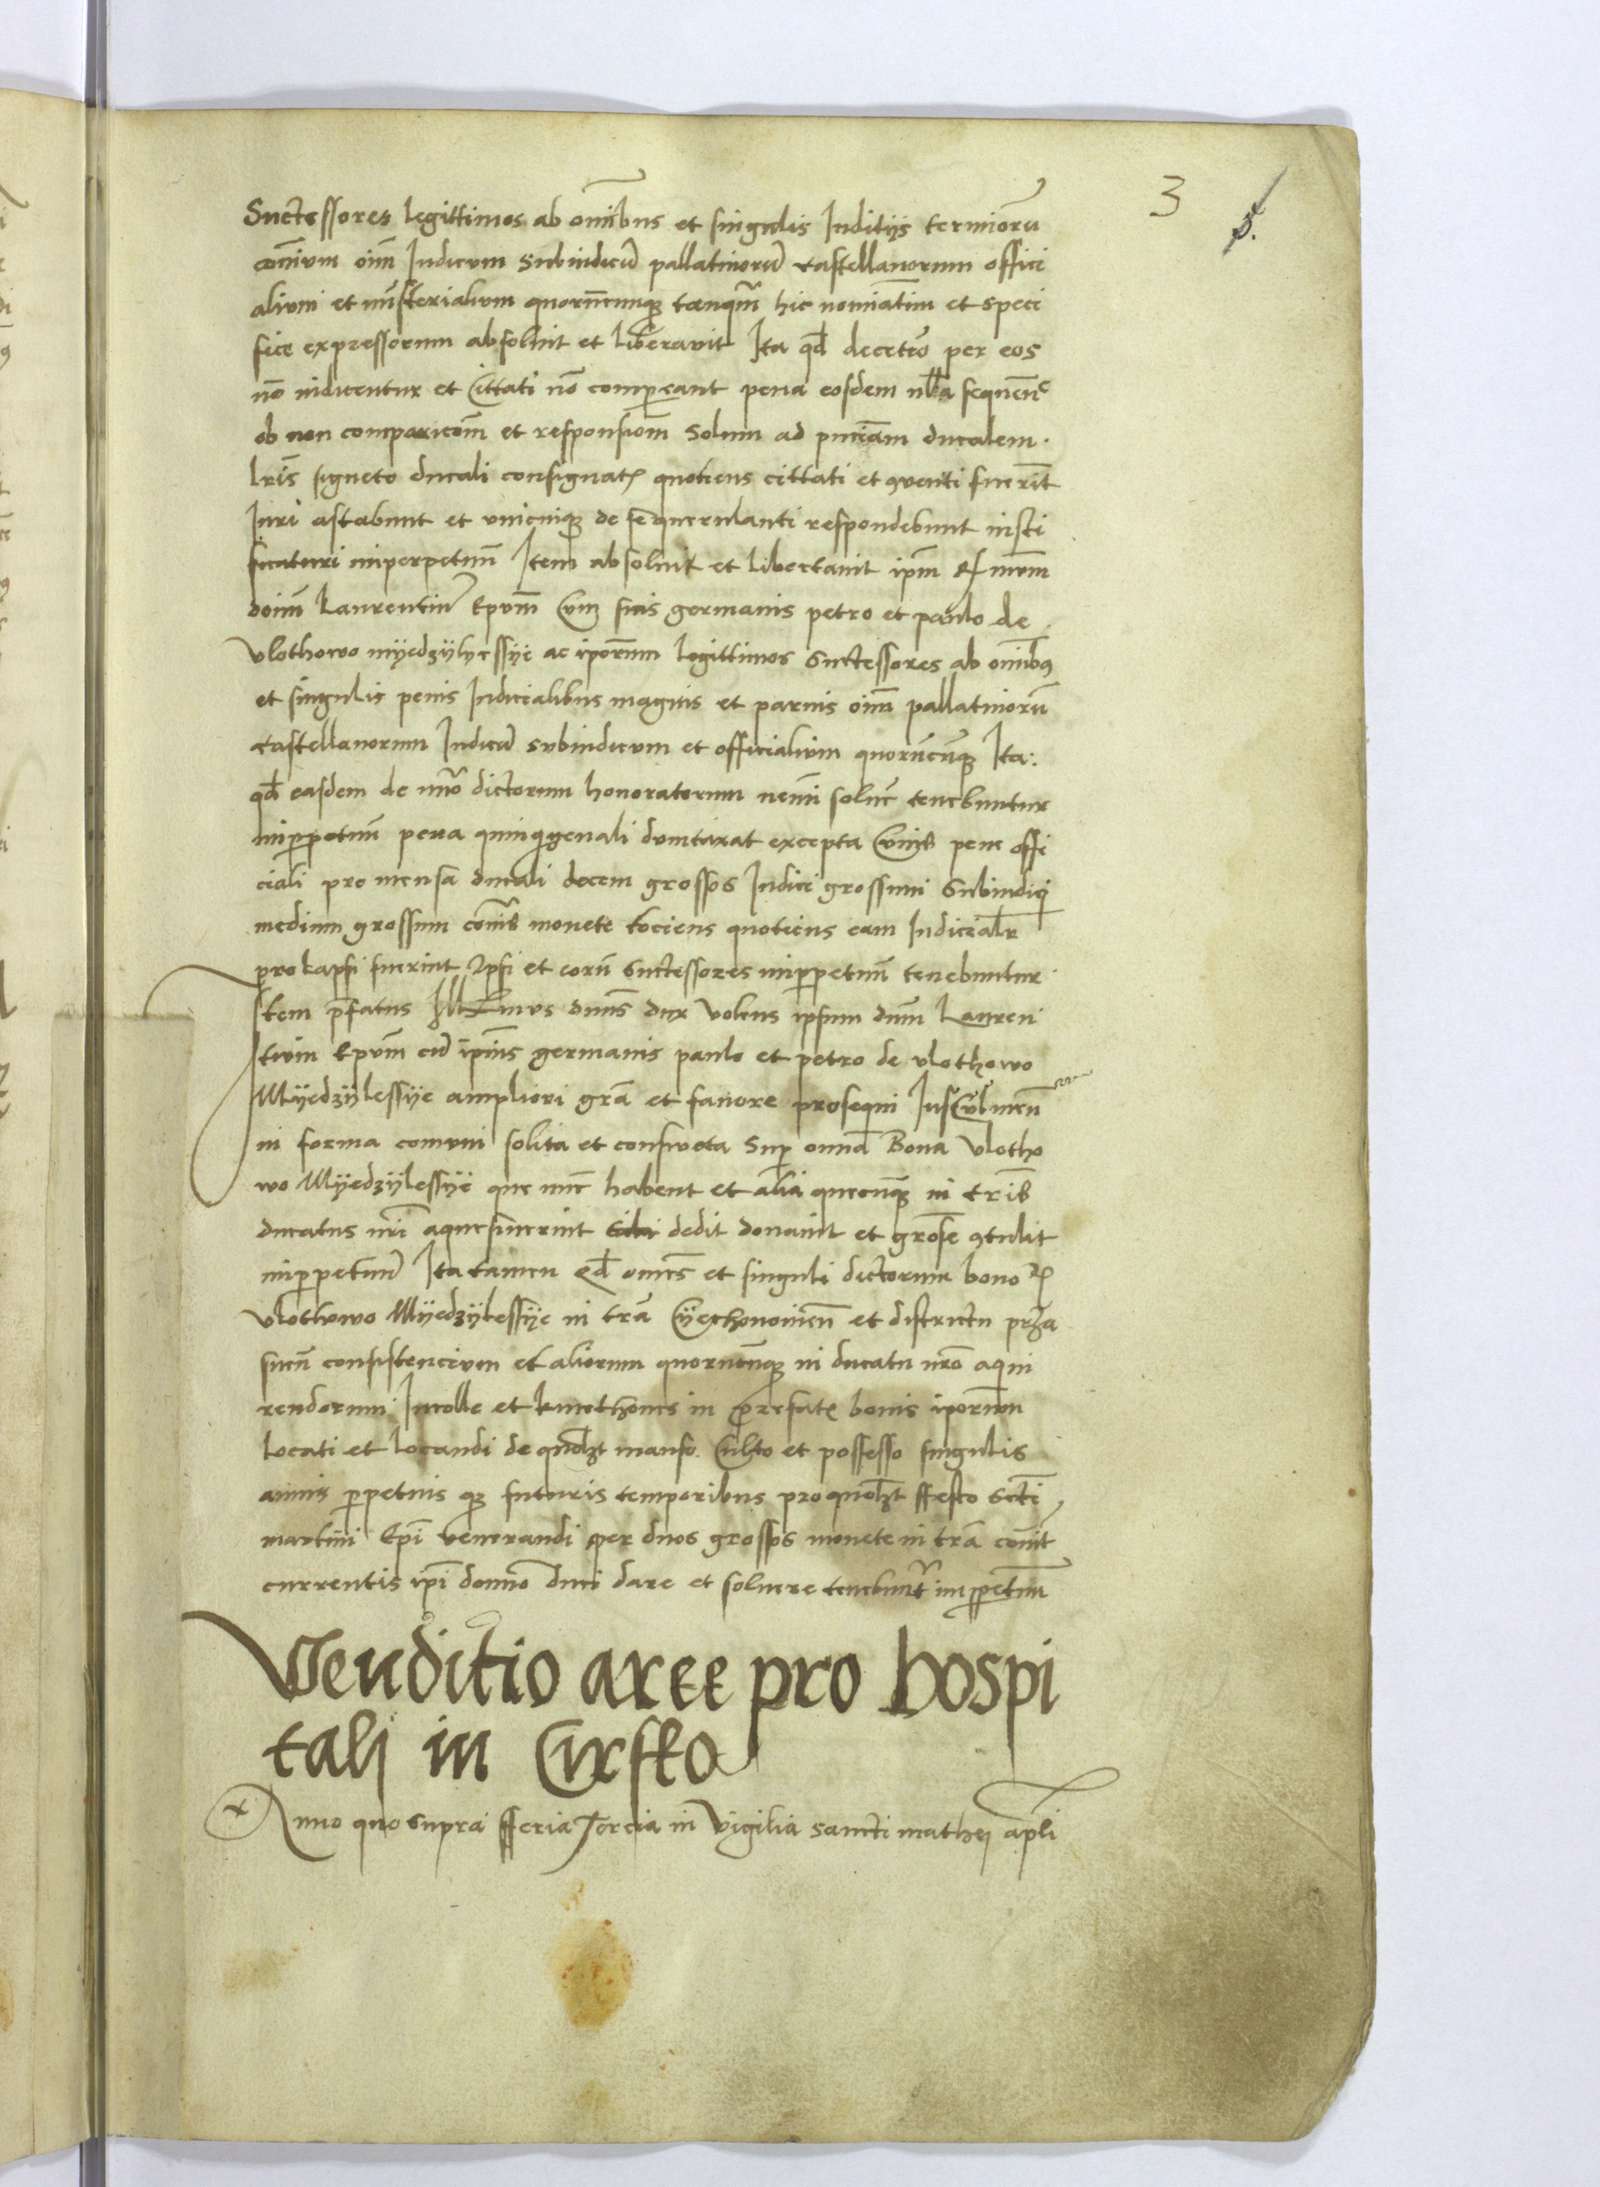 3
3.
Suctessores legittimos ab omibus et singulis Inditijs termioru
comuum oim Iudicum Subiudicu pallatinoru castellanorum offici
alium et misterialium quorucumqz tanqm hic nomiatim et speci
fice expressorum absoluit et liberavit Ita qd decetero per eos
no iudicentur et Cittati no compareant pena eosdem nlla sequen
ob non comparicom et responsiom Solum ad pnciam ducalem
lris signeto ducali consignatz quotiens cittati et 9venti fuerit
Iuri astabunt et unicuiqz de se querulanti respondebunt iusti
ficaturi inperpetuu Item absoluit et libertavit ipm
doim Laurentiu Epum Cum suis germanis petro et paulo de
Vlothowo myedzylyessye ac iporum legittimos Suctessores ab omib9
et singulis penis Iudicialibus magnis et parvis oim pallatinoru
castellanorum Iudicu subiudicum et officialium quorucuqz Ita
qd easdem de nuo dictorum honoratorum nemi solue tenebuntur
inperpetuu pena quinqgenali dumtaxat excepta Cuius pene offi
ciali pro mensa ducali decem grossos Iudici grossum Subiudici
medium grossum comis monete tociens quotiens eam Iudicialr
prolapsi fuerint Ipsi et eoru Suctessores inperpetuu tenebuntur
Item pfatus Ill dnus dux volens ipsum dnm Lauren
tium Epum cu ipius germanis paulo et petro de vlothowo
Myedzylessye ampliori gra et favore prosequi Ius Culmen
in forma comuni solita et consueta Sup omia Bona Vlotho
wo Myedzylessye que nuc habent et alia quecuqz in tris
ducatus nri aquesiuerint tibi dedit donavit et grose 9tulit
inperpetuu Ita tamen qd omes et singuli dictorum bonorz
Vlothowo Myedzylessye in tra Cyechonovien et districtu prza
sucn consistencium et aliorum quorucuqz in ducatu nro aqui
rendorum Incolle et kmethones in prefatz bonis iporum
locati et locandi de quolzt manso Culto et possesso singulis
annis perpetuis qz futuris temporibus pro quolzt ffesto Scti
martini Epi venerandi per duos grossos monete in tra comit
currentis ipi domio duci dare et soluere tenebuntr inperpetuu
Venditio aree pro hospi
tali in Cirsko
Anno quo supra fferia Tercia in Vigilia sancti mathei apli